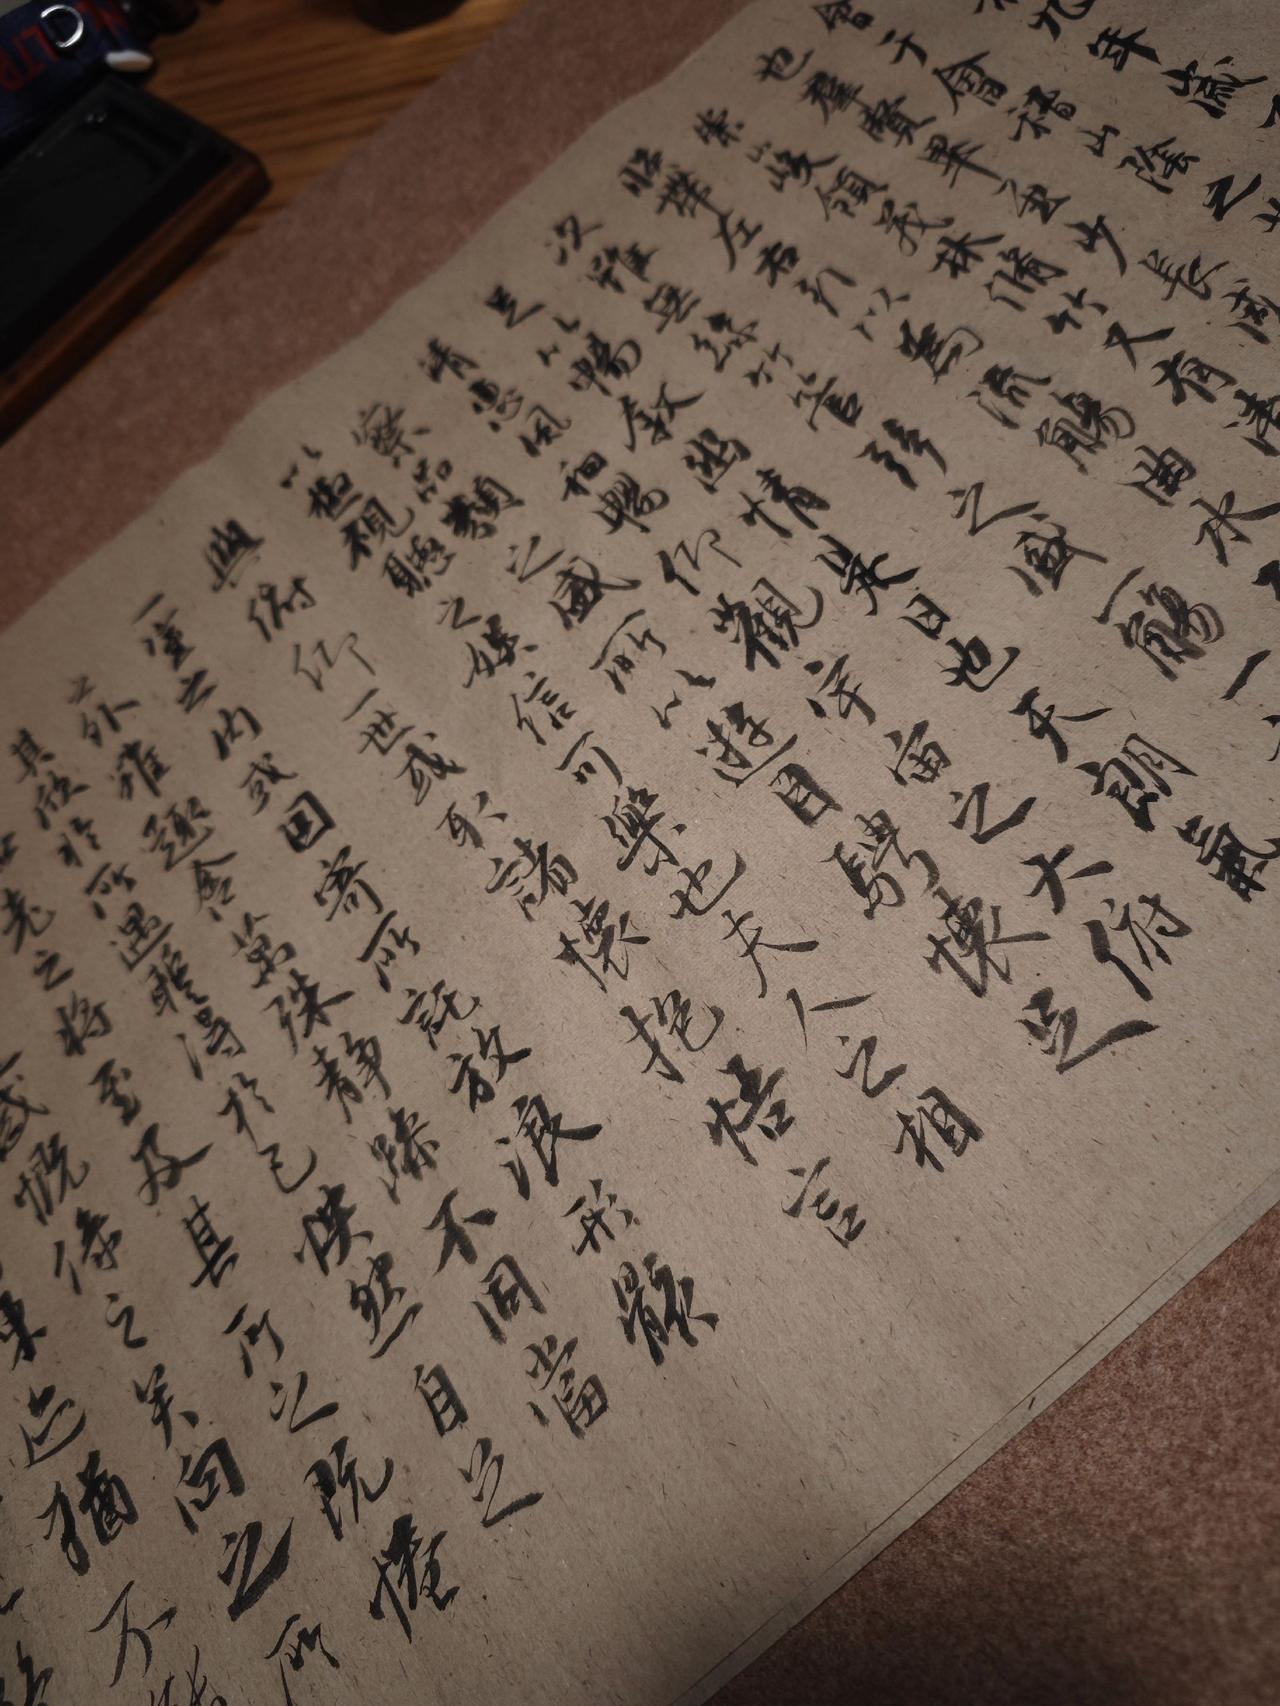 九年歲
會于會稽山陰之
也群賢畢至少長咸
崇山峻領茂林脩竹又有清
暎帶左右引以為流觴曲水
次雖無絲竹管弦之盛一觴一
足以暢敘幽情是日也天朗氣
清惠風和暢仰觀宇宙之大俯
察品類之盛所以遊目騁懷足
以極視聽之娛信可樂也夫人之相
與俯仰一世或取諸懷抱悟言
一室之內或因寄所託放浪形骸
之外雖趣舍萬殊靜躁不同當
其欣於所遇暫得於己怏然自足
老之將至及其所之既惓
感慨係之矣向之所
迹猶不